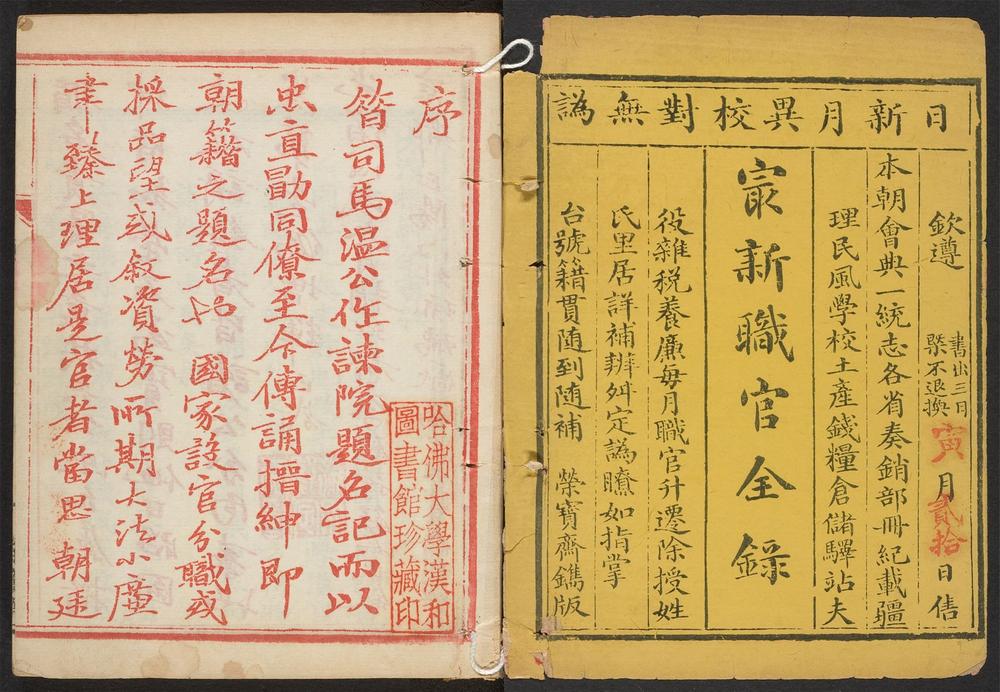 日新月異校對無譌
欽遵
書出三日
槩不退換
寅月貳拾日售
本朝會典一統志各省奏銷部冊紀載疆
理民風學校土產錢糧倉儲驛站夫
㝡新職官全錄
役雜稅養廉每月職官升遷除授姓
氏里居詳補辦舛定譌瞭如指掌
台號籍貫隨到隨補 榮寶齋鐫版
序
昝司馬溫公作諫院題名記而以
忠直勗同僚至今傳誦搢紳即
朝籍之題名也 國家設官分職或
採品望或敘資勞所期大法小廉
聿臻上理居是官者當思 朝廷
哈佛大學漢和
圖書館珍藏印